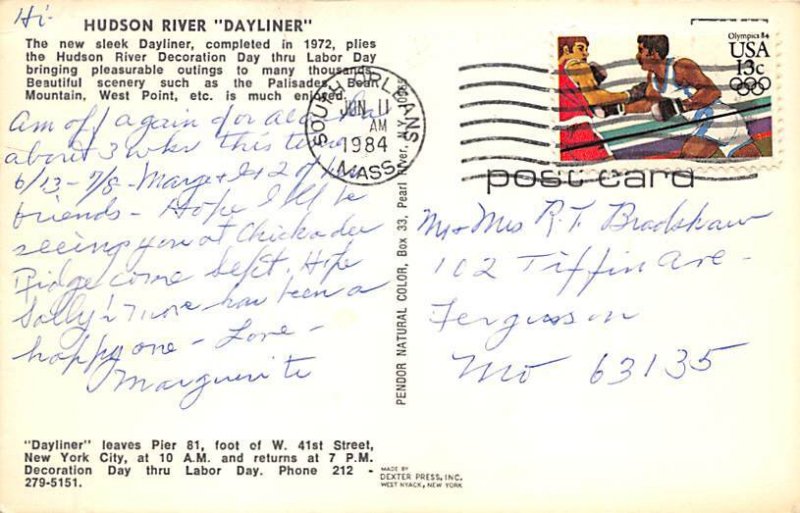 Hi-
HUDSON RIVER "DAYLINER"
The new sleek Dayliner, completed in 1972, plies
the Hudson River Decoration Day thru Labor Day
bringing pleasurable outings to many thousands.
Beautiful scenery such as the Palisades, Bear
Mountain, West Point, etc. is much enjoyed.
Am off again for Alaska
about 3 wks this time
6/13-7/8- Marge & I & 2 of
friends- Hope I'll be
seeing you at Chickadee
Ridge come Sept. Hope
Sally's has been a
happy one - Love -
Marguerite
"Dayliner" leaves Pier 81, foot of W. 41st Street,
New York City, at 10 A.M. and returns at 7 P.M.
Decoration Day thru Labor Day. Phone 212 -
279-5151.
PENDOR NATURAL COLOR, Box 33, Pearl River, N.Y. 10965
MADE BY
DEXTER PRESS, INC.
WEST NYACK, NEW YORK
SOUTH ORLEANS
JUN 11
AM
1984
MASS.
Olympics 84
USA
13c
post card
Mr & Mrs R.T. Bradshaw
102 Tiffin Ave-
Ferguson
Mo 63135